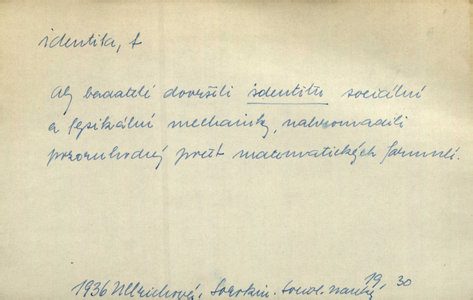 identita, f
Aby badatelé dovršili identitu sociální
a fysikální mechaniky, nahromadili
pozoruhodný počet matematických formulí.
1936 Ullrichová, Sorokin. Sociol. nauky 19, 30